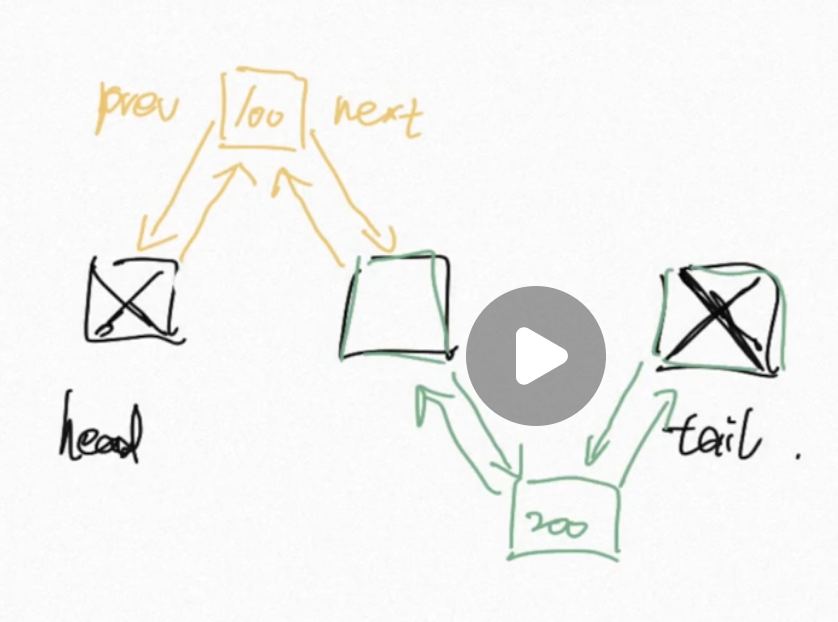 prev 100 next
head
tail .
200